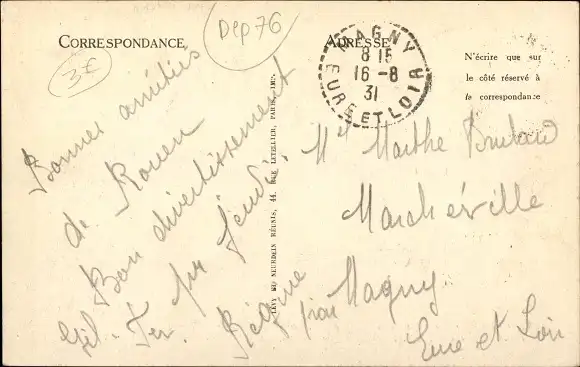 Dep 76
CORRESPONDANCE
ADRESSE
3€
MAGNY
8 15
16-8
31
EURE ET LOIR
N'écrire que sur
le côté réservé à
la correspondance
Bonnes amitiés
de Rouen
Bon divertissement
pr jeudi.
Régine
LÉVY ET NEURDEIN RÉUNIS, 44, RUE LETELLIER, PARIS. IMP.
Mlle Marthe
Marchéville
par Magny
Eure et Loir